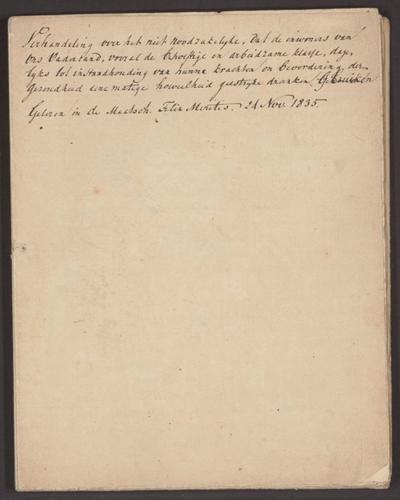 Verhandeling over het niet noodzakelijke, dat de inwoners van
ons Vaderland, vooral de behoeftige en arbeidzame klasse, dage-
lyks tot instandhouding van hunne krachten en bevordering der
Gezondheid eene matige hoeveelheid geestryke dranken gebruiken
Gelezen in de Maatsch. Felix Meritis. 24 Nov. 1835.